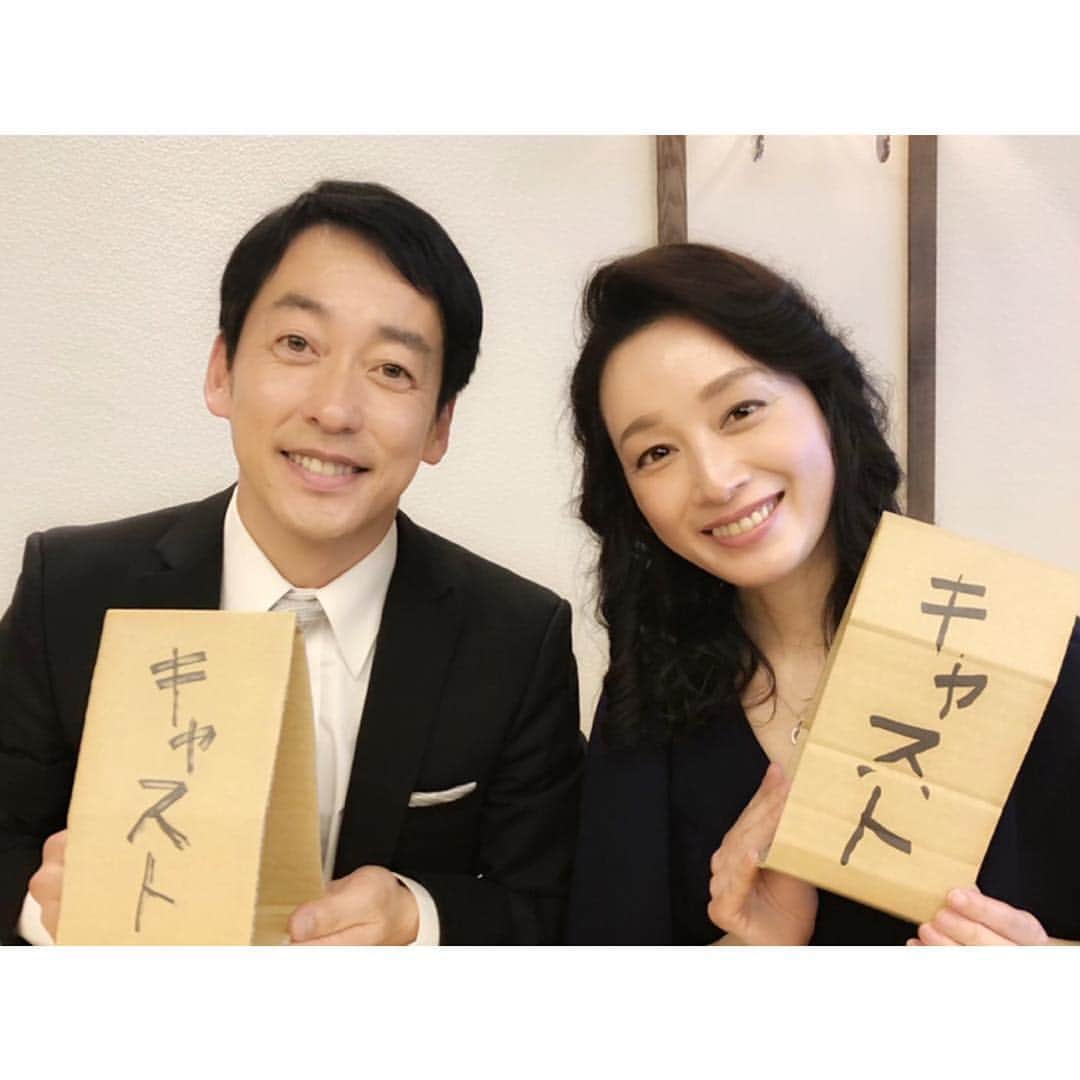 キャスト
キャスト